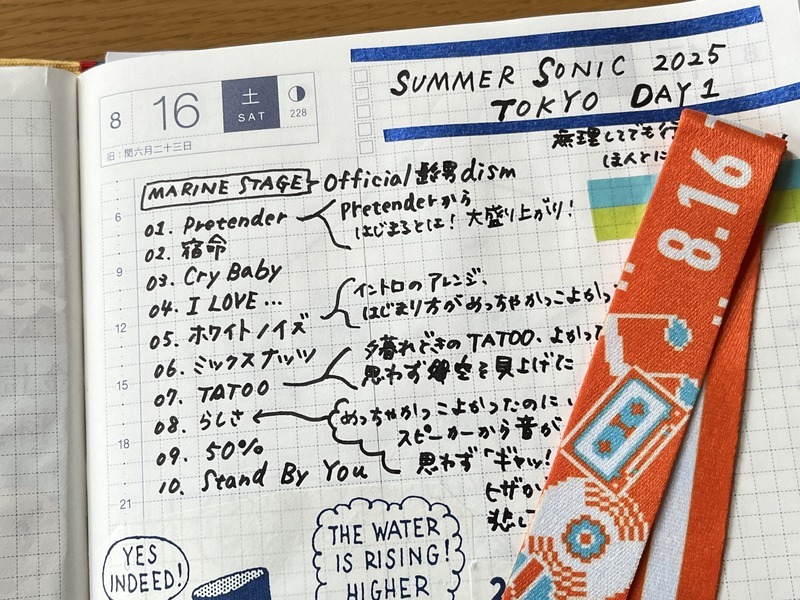 8 16 土 SAT 228
旧:閏六月二十三日
SUMMER SONIC 2025
TOKYO DAY 1
無理してでも行
ほんとに
MARINE STAGE Official髭男dism
01. Pretender
Pretenderから
はじまるとは!大盛り上がり!
02. 宿命
03. Cry Baby
04. I LOVE...
イントロのアレンジ、
はじまり方がめっちゃかっこよかっ
05. ホワイトノイズ
06. ミックスナッツ
夕暮れどきのTATOO、よかっ
07. TATOO
思わず空を見上げた
08. らしさ
めっちゃかっこよかったのに、
スピーカーから音が
09. 50%
思わず「ギャッ!
10. Stand By You
ヒザか
悲し
6
9
12
15
18
21
8.16
YES INDEED!
THE WATER
IS RISING!
HIGHER